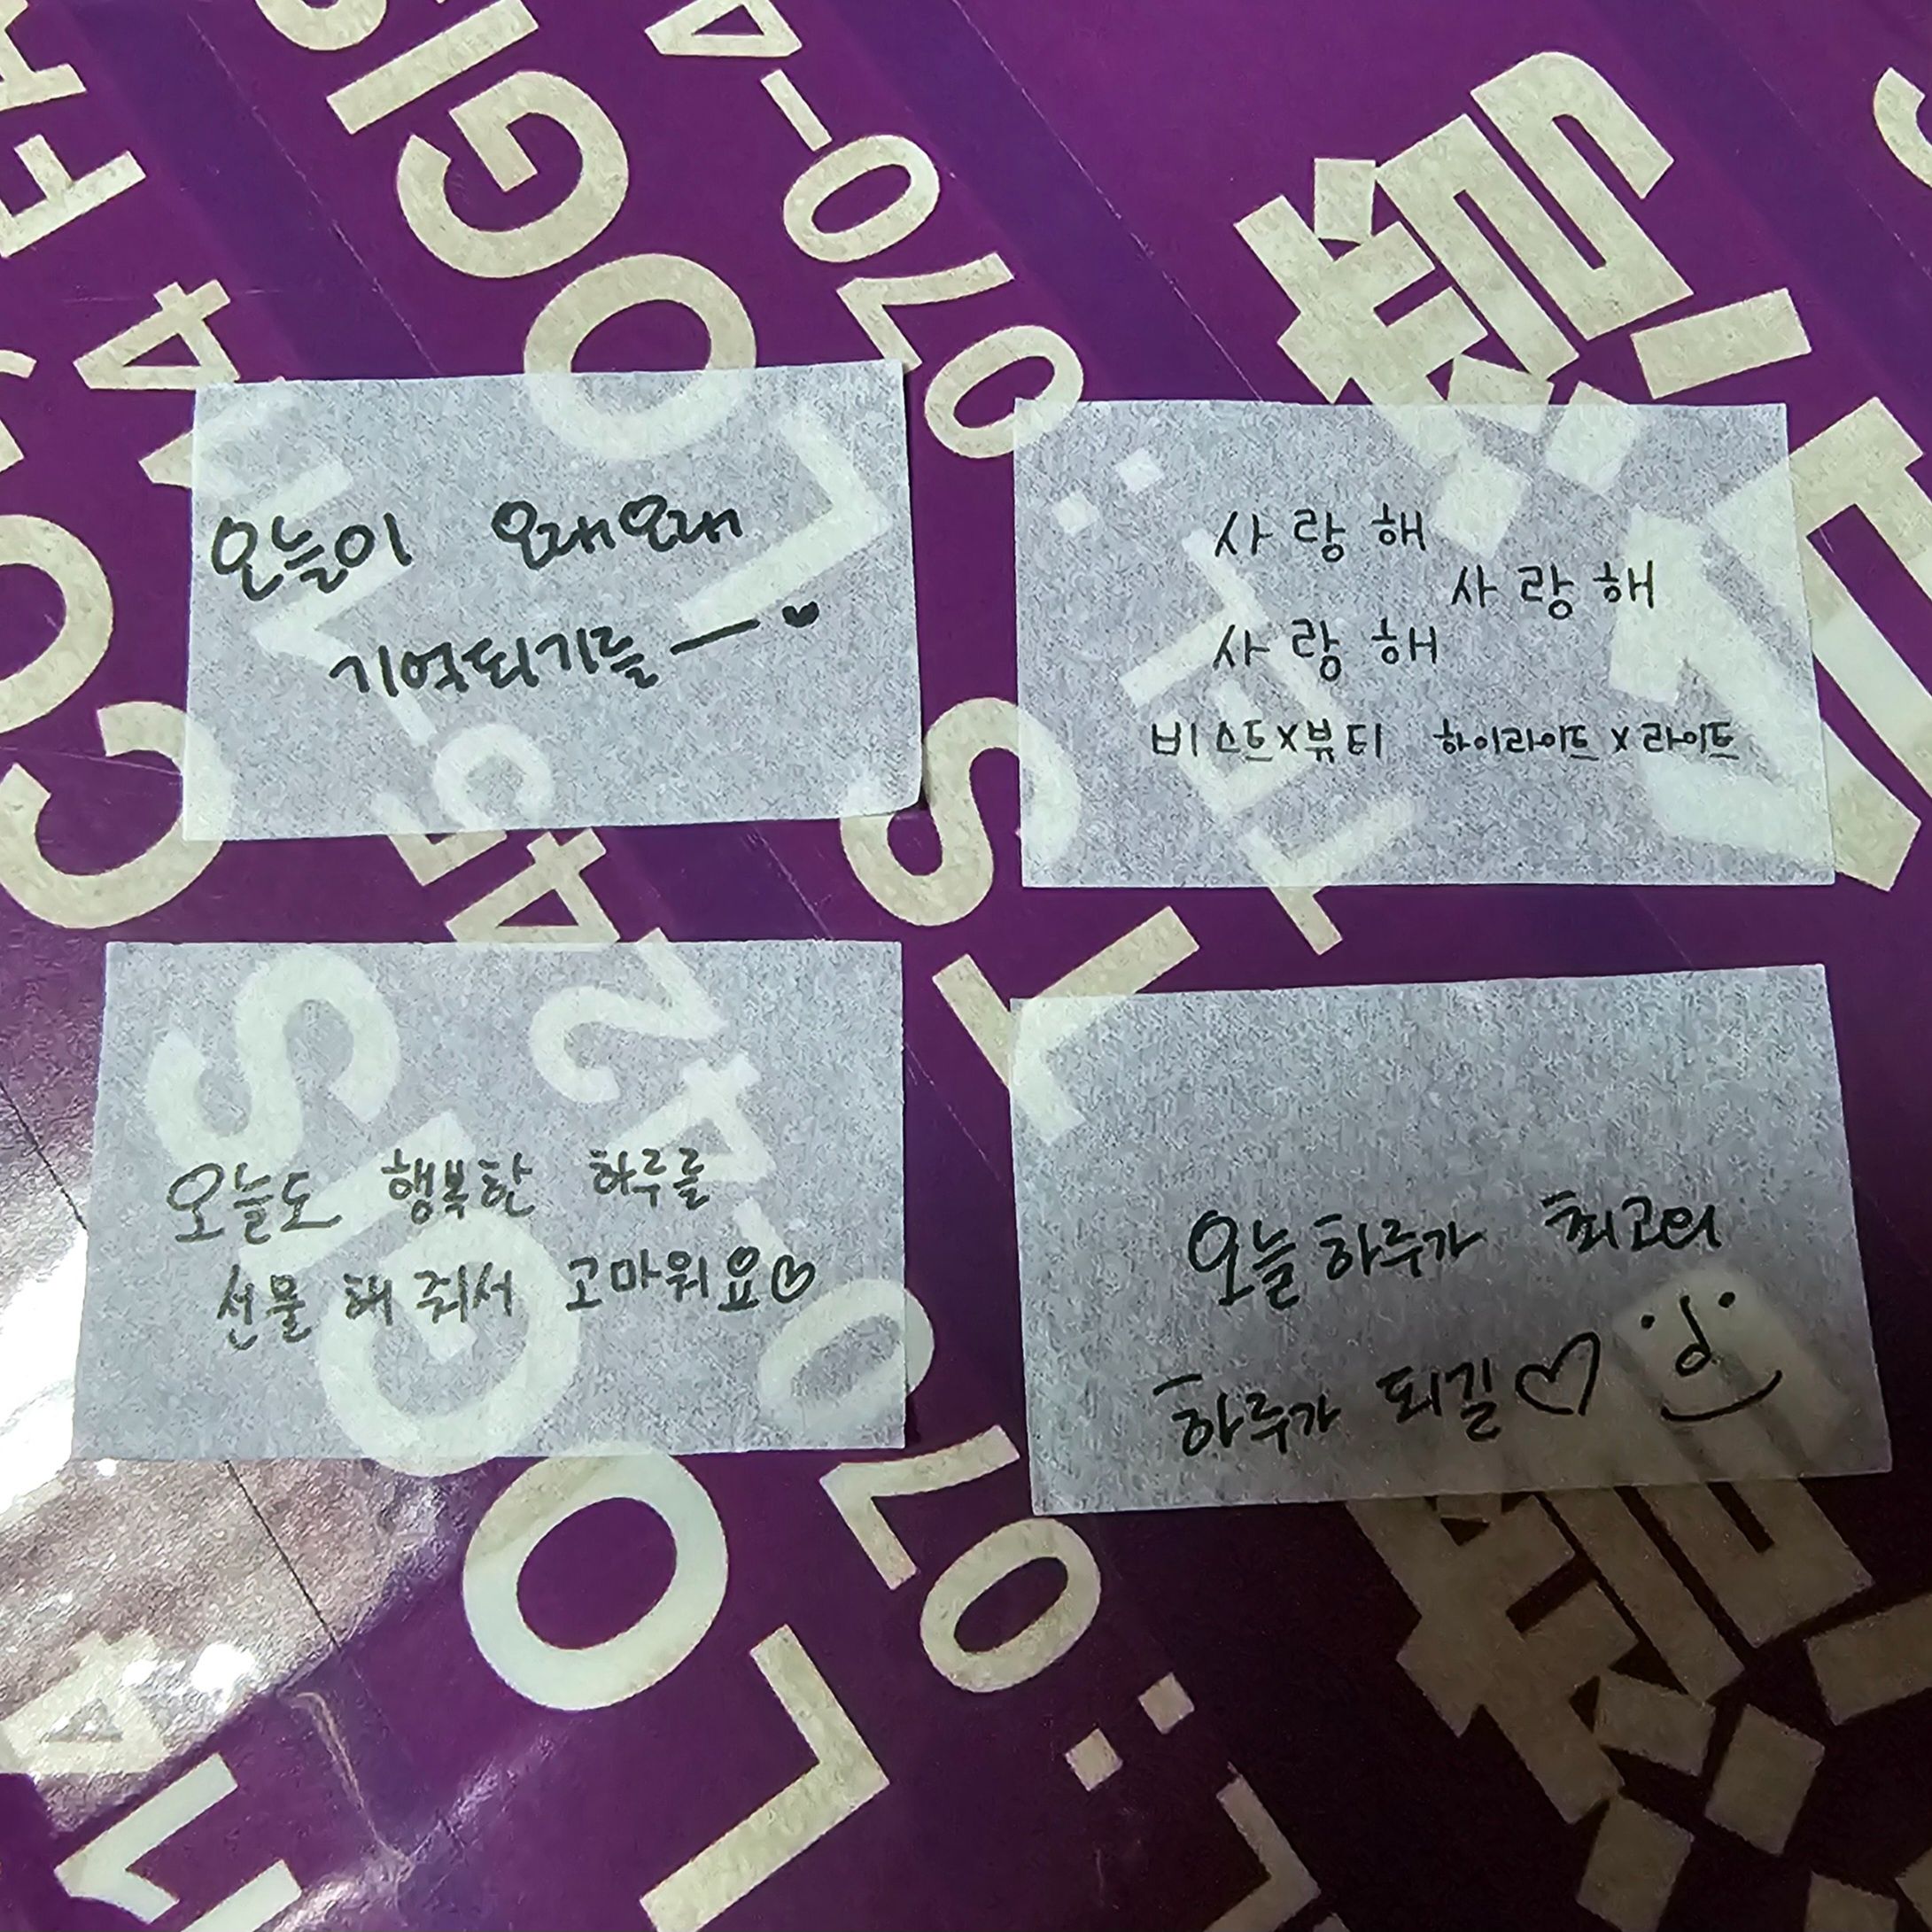 오늘이 오래오래
기억되기를 —
사랑해
사랑해
사랑해
비스트x뷰티 하이라이트 x 라이트
오늘도 행복한 하루를
선물 해 줘서 고마워요
오늘 하루가 최고의
하루가 되길